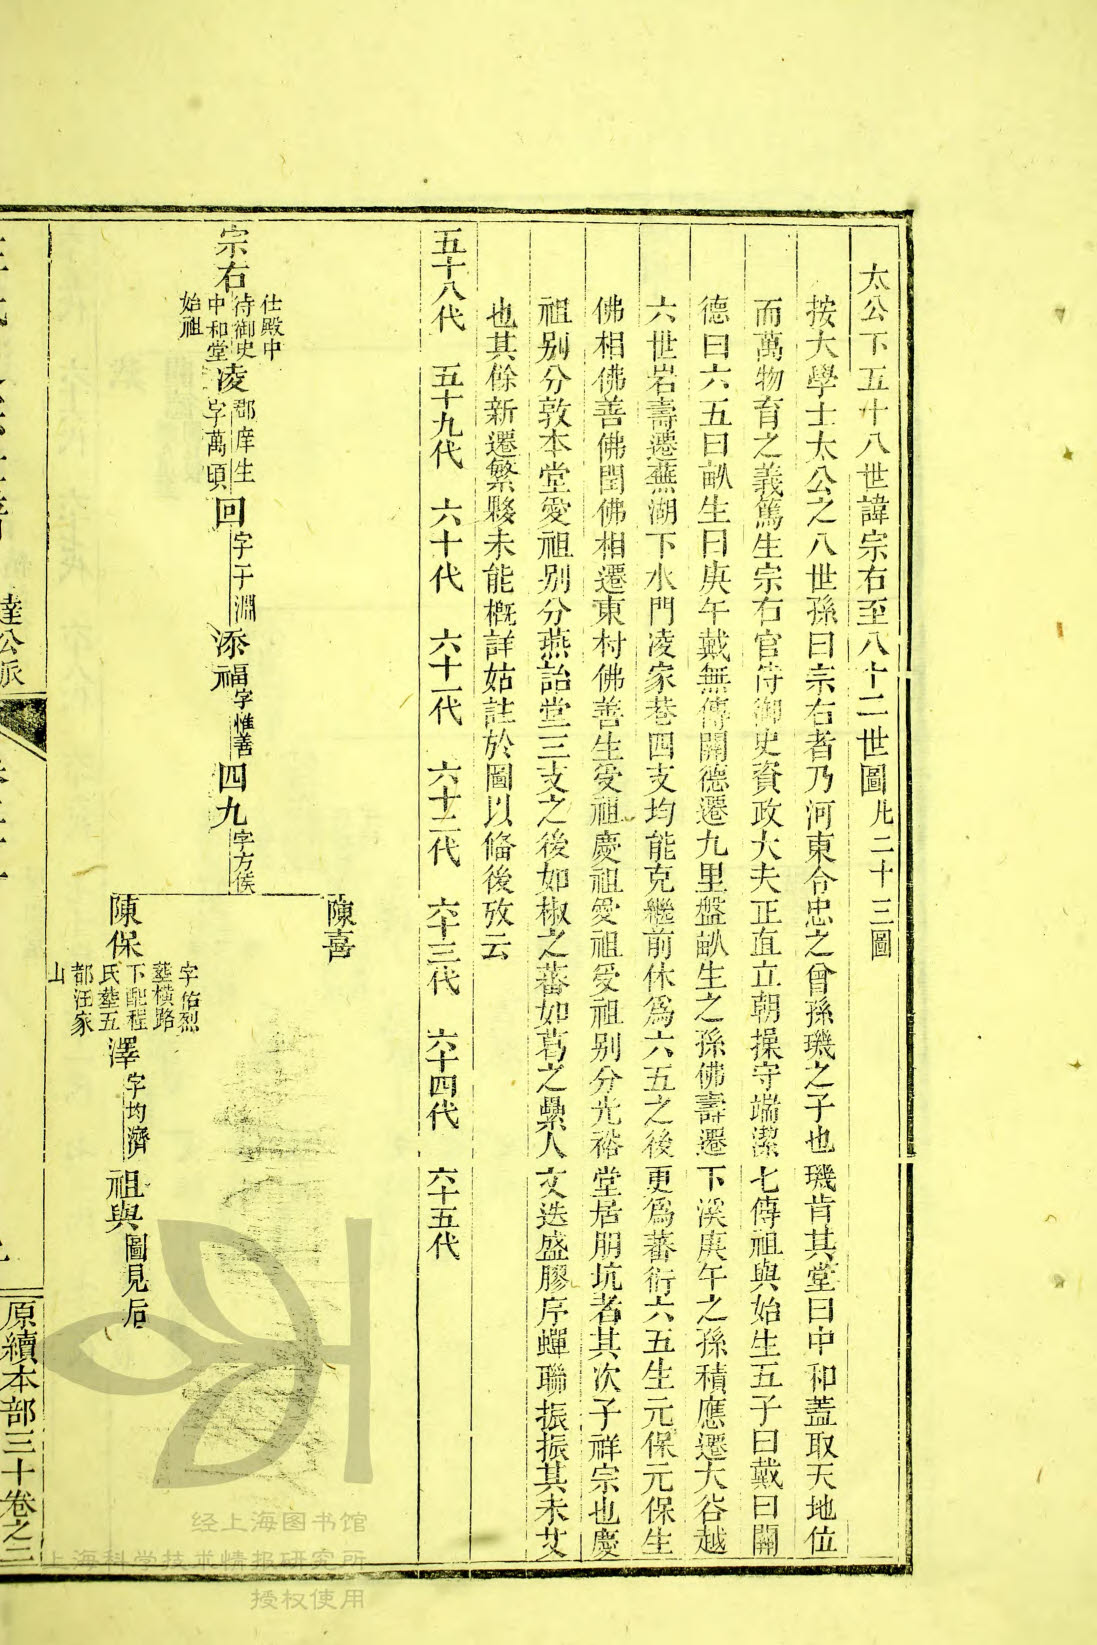 太公下五十八世諱宗右至八十二世圖凡二十三圖
按大學士太公之八世孫曰宗右者乃河東令忠之曾孫璣之子也璣肯其堂曰中和蓋取天地位
而萬物育之義篤生宗右官侍御史資政大夫正直立朝操守端潔七傳祖與始生五子曰戴曰開
德曰六五曰畝生曰庚午戴無傳開德遷九里盤畝生之孫佛壽遷下溪庚午之孫積應遷大谷越
六世岩壽遷蕪湖下水門凌家巷四支均能克繼前休爲六五之後更爲蕃衍六五生元保元保生
佛相佛善佛閏佛相遷東村佛善生受祖慶祖愛祖受祖別分光裕堂居朋坑者其次子祥宗也慶
祖別分敦本堂愛祖別分燕詒堂三支之後如椒之蕃如葛之纍人文迭盛膠序蟬聯振振其未艾
也其餘新遷繁夥未能概詳姑註於圖以俻後攷云
五十八代 五十九代 六十代 六十一代 六十二代 六十三代 六十四代 六十五代
宗右 仕殿中侍御史中和堂始祖
凌 郡庠生字萬頃
回 字子淵
添福 字惟善
四九 字方俟
陳喜
陳保 字佑烈塟橫路下配程氏塟五都汪家山
澤 字均濟
祖與 圖見后
達公派
原續本部三十卷之三
经上海图书馆
上海科学技术情报研究所
授权使用